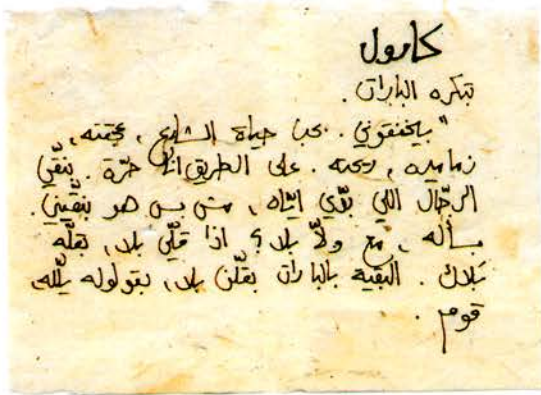 كارول
تبكره البارات.
"بيخنقوني. بحب حياة الشارع، عجقته،
زماميره، ريحته. على الطريق انا حرّة. بنقّي
الرجّال اللي بدّي ايّاه، مش بس هو بنقّيني.
بسأله، مع ولّا بلا؟ اذا قلّي بلا، بقلّه
بَلاك. البقية بالبارات بقلّن بلا، بقولوله يلّله،
قوم.